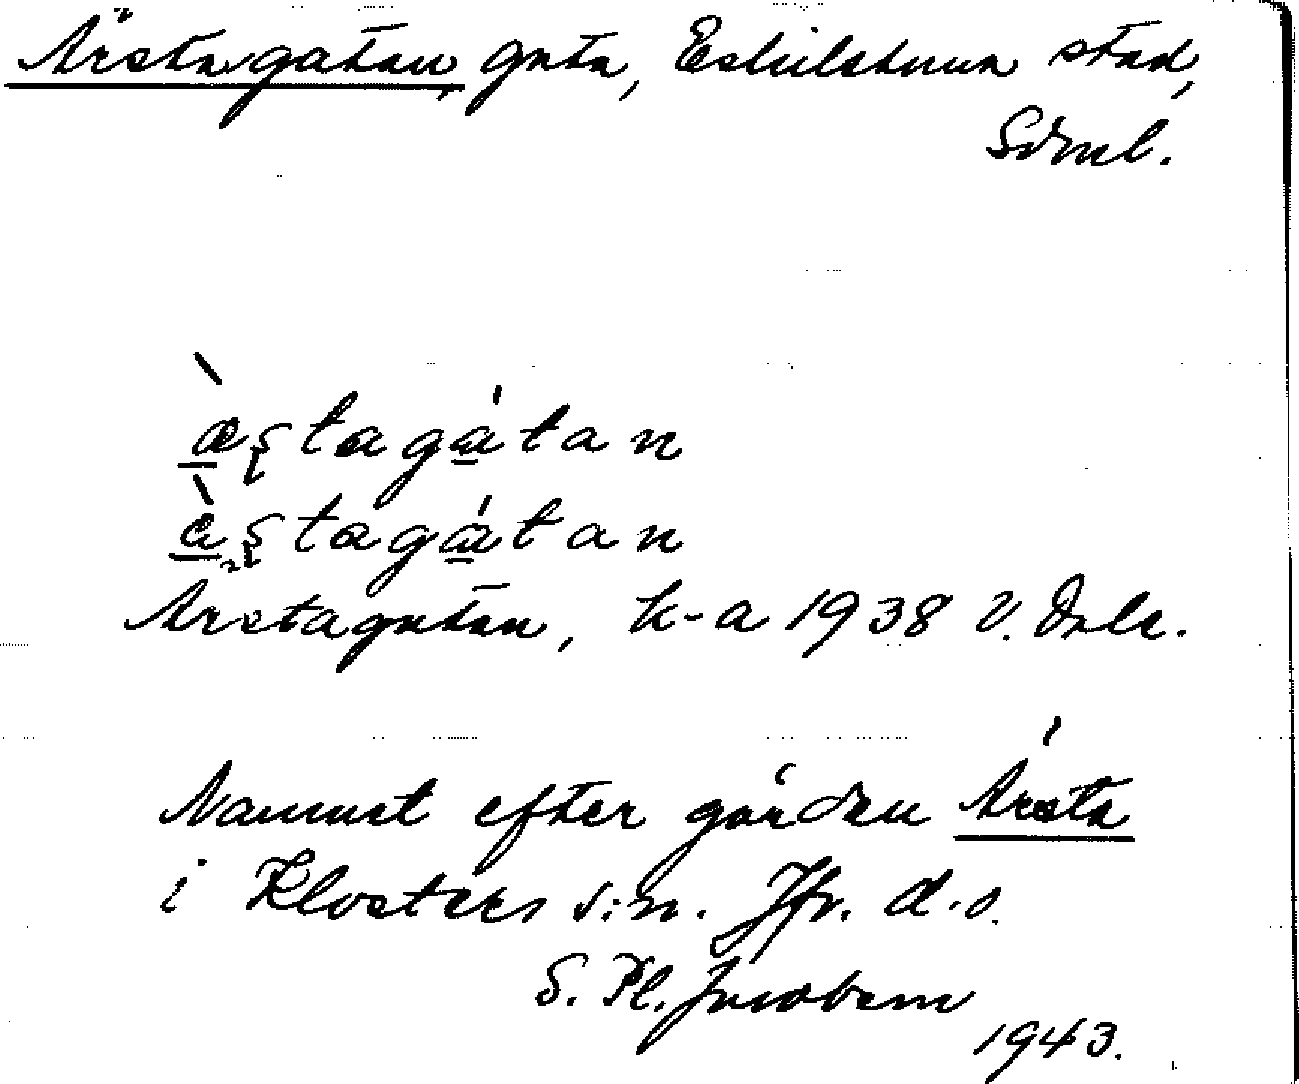 Årstagatan, gata, Eskilstuna stad,
Sdml.
Årstagatan, k-a 1938 V. Dale.
Namnet efter gården Årsta
i Klosters s:n. Jfr. d. o.
S. Pl. Jacobsen
1943.